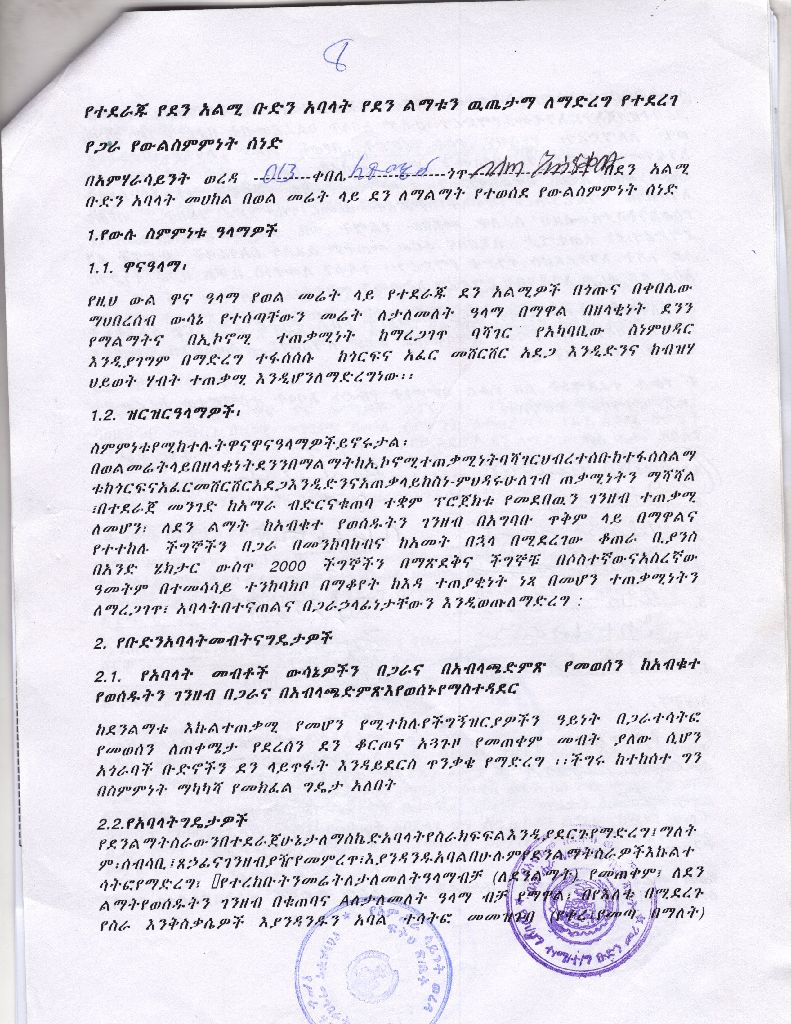 8
የተደራጁ የደን አልሚ ቡድን አባላት የደን ልማቱን ዉጤታማ ለማድረግ የተደረገ
የጋራ የውልስምምነት ሰነድ
በአምሃራሳይንት ወረዳ 013 ቀበሌ ጎጥ ለደን አልሚ
ቡድን አባላት መሀከል በወል መሬት ላይ ደን ለማልማት የተወሰደ የውልስምምነት ሰነድ
1.የውሉ ስምምነቱ ዓላማዎች
1.1. ዋናዓላማ፡
የዚህ ውል ዋና ዓላማ የወል መሬት ላይ የተደራጁ ደን አልሚዎች በጎጡና በቀበሌው
ማህበረሰብ ውሳኔ የተሰጣቸውን መሬት ለታለመለት ዓላማ በማዋል በዘላቂነት ደንን
የማልማትና በኢኮኖሚ ተጠቃሚነት ከማረጋገጥ ባሻገር የአካባቢው ስነምህዳር
እንዲያገግም በማድረግ ተፋሰሰሱ ከጎርፍና አፈር መሸርሸር አደጋ እንዲድንና ከብዝሃ
ህይወት ሃብት ተጠቃሚ እንዲሆንለማድረግነው፡፡
1.2. ዝርዝርዓላማዎች፡
ስምምነቱየሚከተሉትዋናዋናዓላማዎችይኖሩታል፡
በወልመሬትላይበዘላቂነትደንንበማልማትከኢኮኖሚተጠቃሚነትባሻገርህብረተሰቡከተፋሰስልማ
ቱከጎርፍናአፈርመሸርሸርአደጋእንዲድንናአጠቃላይከስነ-ምህዳሩሁለገብ ጠቃሚነትን ማሻሻል
፤በተደራጀ መንገድ ከአማራ ብድርናቁጠባ ተቋም ፕሮጀክቱ የመደበዉን ገንዘብ ተጠቃሚ
ለመሆን፤ ለደን ልማት ከአብቁተ የወሰዱትን ገንዘብ በአግባቡ ጥቅም ላይ በማዋልና
የተተከሉ ችግኞችን በጋራ በመንከባከብና ከአመት በኋላ በሚደረገው ቆጠራ ቢያንስ
በአንድ ሄክታር ውስጥ 2000 ችግኞችን በማጽደቅና ችግኞቹ በሶስተኛውናአስረኛው
ዓመትም በተመሳሳይ ተንከባክቦ በማቆየት ከእዳ ተጠያቂነት ነጻ በመሆን ተጠቃሚነትን
ለማረጋገጥ፤ አባላትበተናጠልና በጋራኃላፊነታቸውን እንዲወጡለማድረግ :
2. የቡድንአባላትመብትናግዴታዎች
2.1. የአባላት መብቶች ውሳኔዎችን በጋራና በአብላጫድምጽ የመወሰን ከአብቁተ
የወሰዱትን ገንዘብ በጋራና በአብላጫድምጽእየወሰኑየማስተዳደር
ከደንልማቱ እኩልተጠቃሚ የመሆን የሚተከሉየችግኝዝርያዎችን ዓይነት በጋራተሳትፎ
የመወሰን ለጠቀሜታ የደረሰን ደን ቆርጦና አጓጉዞ የመጠቀም መብት ያለው ሲሆን
አጎራባች ቡድኖችን ደን ላይጥፋት እንዳይደርስ ጥንቃቄ የማድረግ ፡፡ችግሩ ከተከሰተ ግን
በስምምነት ማካካሻ የመክፈል ግዴታ አለበት
2.2.የአባላትግዴታዎች
የደንልማትስራውንበተደራጀሁኔታለማስኬድአባላትየስራክፍፍልእንዲያደርጉየማድረግ፤ማለት
ም፡ሰብሳቢ፤ጸኃፊናገንዘብያዥየመምረጥ፤እያንዳንዱአባልበሁሉምየደንልማትስራዎችእኩልተ
ሳትፎየማድረግ፤ የተረከቡትንመሬትለታለመለትዓላማብቻ (ለደንልማት) የመጠቀም፤ ለደን
ልማትየወሰዱትን ገንዘብ በቁጠባና Aለታለመለት ዓላማ ብቻ የማዋል፤ በየእለቱ በሚደረጉ
የስራ እንቅስቃሴዎች እያንዳንዱን አባል ተሳትፎ መመዝገብ (የቀረ፤የመጣ በማለት)